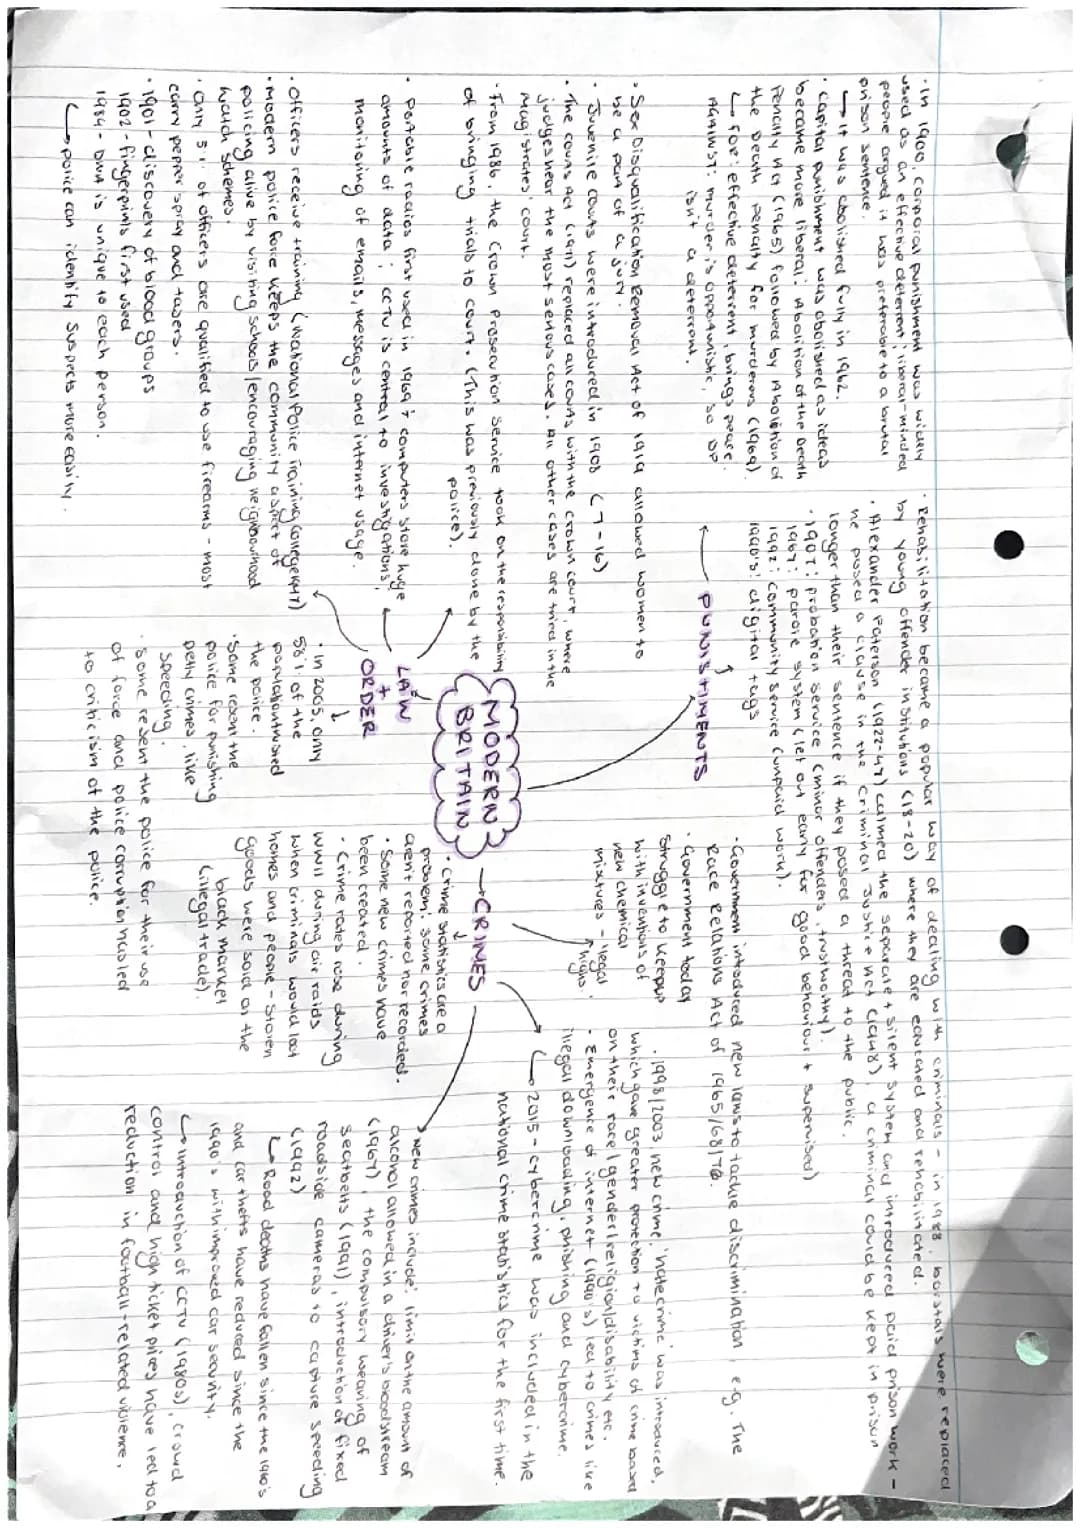 · In 1900, corporal punishment was widely
used as an effective deterrent; liberal-minded
people argued it was preferable to a brutal
prison sentence.
↳ It was abolished fully in 1962.
· Capital punishment was abolished as ideas
became more liberal: Abolition of the Death
Penalty Act (1965) followed by Abolition of
the Death Penalty for murderous (1969).
↳ for: effective deterrent, brings peace.
AGAINST: murder is opportunistic, so DP
isn't a deterrent.
· Rehabilitation became a popular way of dealing with criminals - in 1988, borstals were replaced
by young offender institutions (18-20) where they are educated and rehabilitated.
· Alexander Paterson (1922-47) calmed the separate + silent system and introduced paid prison work -
he posed a clause in the Criminal Justice Act (1948), a criminal could be kept in prison
longer than their sentence if they posed a threat to the public.
· 1907: probation service (minor offenders, trustworthy).
1967: parole system (let out early for good behaviour + supervised)
1992: community service (unpaid work).
1990's: digital tags
PUNISHMENTS
· Sex Disqualification Removal Act of 1919 allowed women to
be a part of a jury.
· Juvenile courts were introduced in 1908 (7-16)
· The Courts Act (1971) replaced all courts with the crown court, where
judges hear the most serious cases. All other cases are tried in the
magistrates' court.
· From 1986, the Crown Prosecution Service took on the responsibility
of bringing trials to court. (This was previously done by the
police).
· Portable radios first used in 1969 + computers store huge
amounts of data; CCTV is central to investigations;
monitoring of emails, messages and internet usage.
· Officers receive training (National Police Training College 1947)
· Modern police force keeps the community aspect of
policing alive by visiting schools/encouraging neighbourhood
watch schemes.
· Only 5% of officers are qualified to use firearms - most
carry pepper spray and tasers.
· 1901 - discovery of blood groups
1902 - fingerprints first used
1984 - DNA is unique to each person.
↳ police can identify suspects more easily.
LAW
+
ORDER
· In 2005, only
58% of the
population trusted
the police.
· Some resent the
police for punishing
petty crimes, like
speeding.
· Some resent the police for their use
of force and police corruption has led
to criticism of the police.
MODERN
BRITAIN
CRIMES
· Government introduced new laws to tackle discrimination, e.g. The
Race Relations Act of 1965/68/76.
· Government today
struggle to keep up
with inventions of
new chemical
mixtures - legal
highs.
· 1998/2003 new crime, 'hate crime' was introduced,
which gave greater protection to victims of crime based
on their race/gender/religion/disability etc.
· Emergence of internet (1990's) led to crimes like
illegal downloading, phishing and cybercrime.
↳ 2015 - cybercrime was included in the
national crime statistics for the first time.
· Crime statistics are a
problem: some crimes
aren't reported nor recorded.
· Some new crimes have
been created.
· Crime rates rose during
WWII during air raids
when criminals would loot
homes and people - stolen
goods were sold on the
black market
(illegal trade).
New crimes include: limit on the amount of
alcohol allowed in a driver's bloodstream
(1967), the compulsory wearing of
seatbelts (1991), introduction of fixed
roadside cameras to capture speeding
(1992)
↳ Road deaths have fallen since the 1960's
and car thefts have reduced since the
1990's with improved car security.
↳ Introduction of CCTV (1980s), crowd
control and high ticket prices have led to a
reduction in football-related violence.